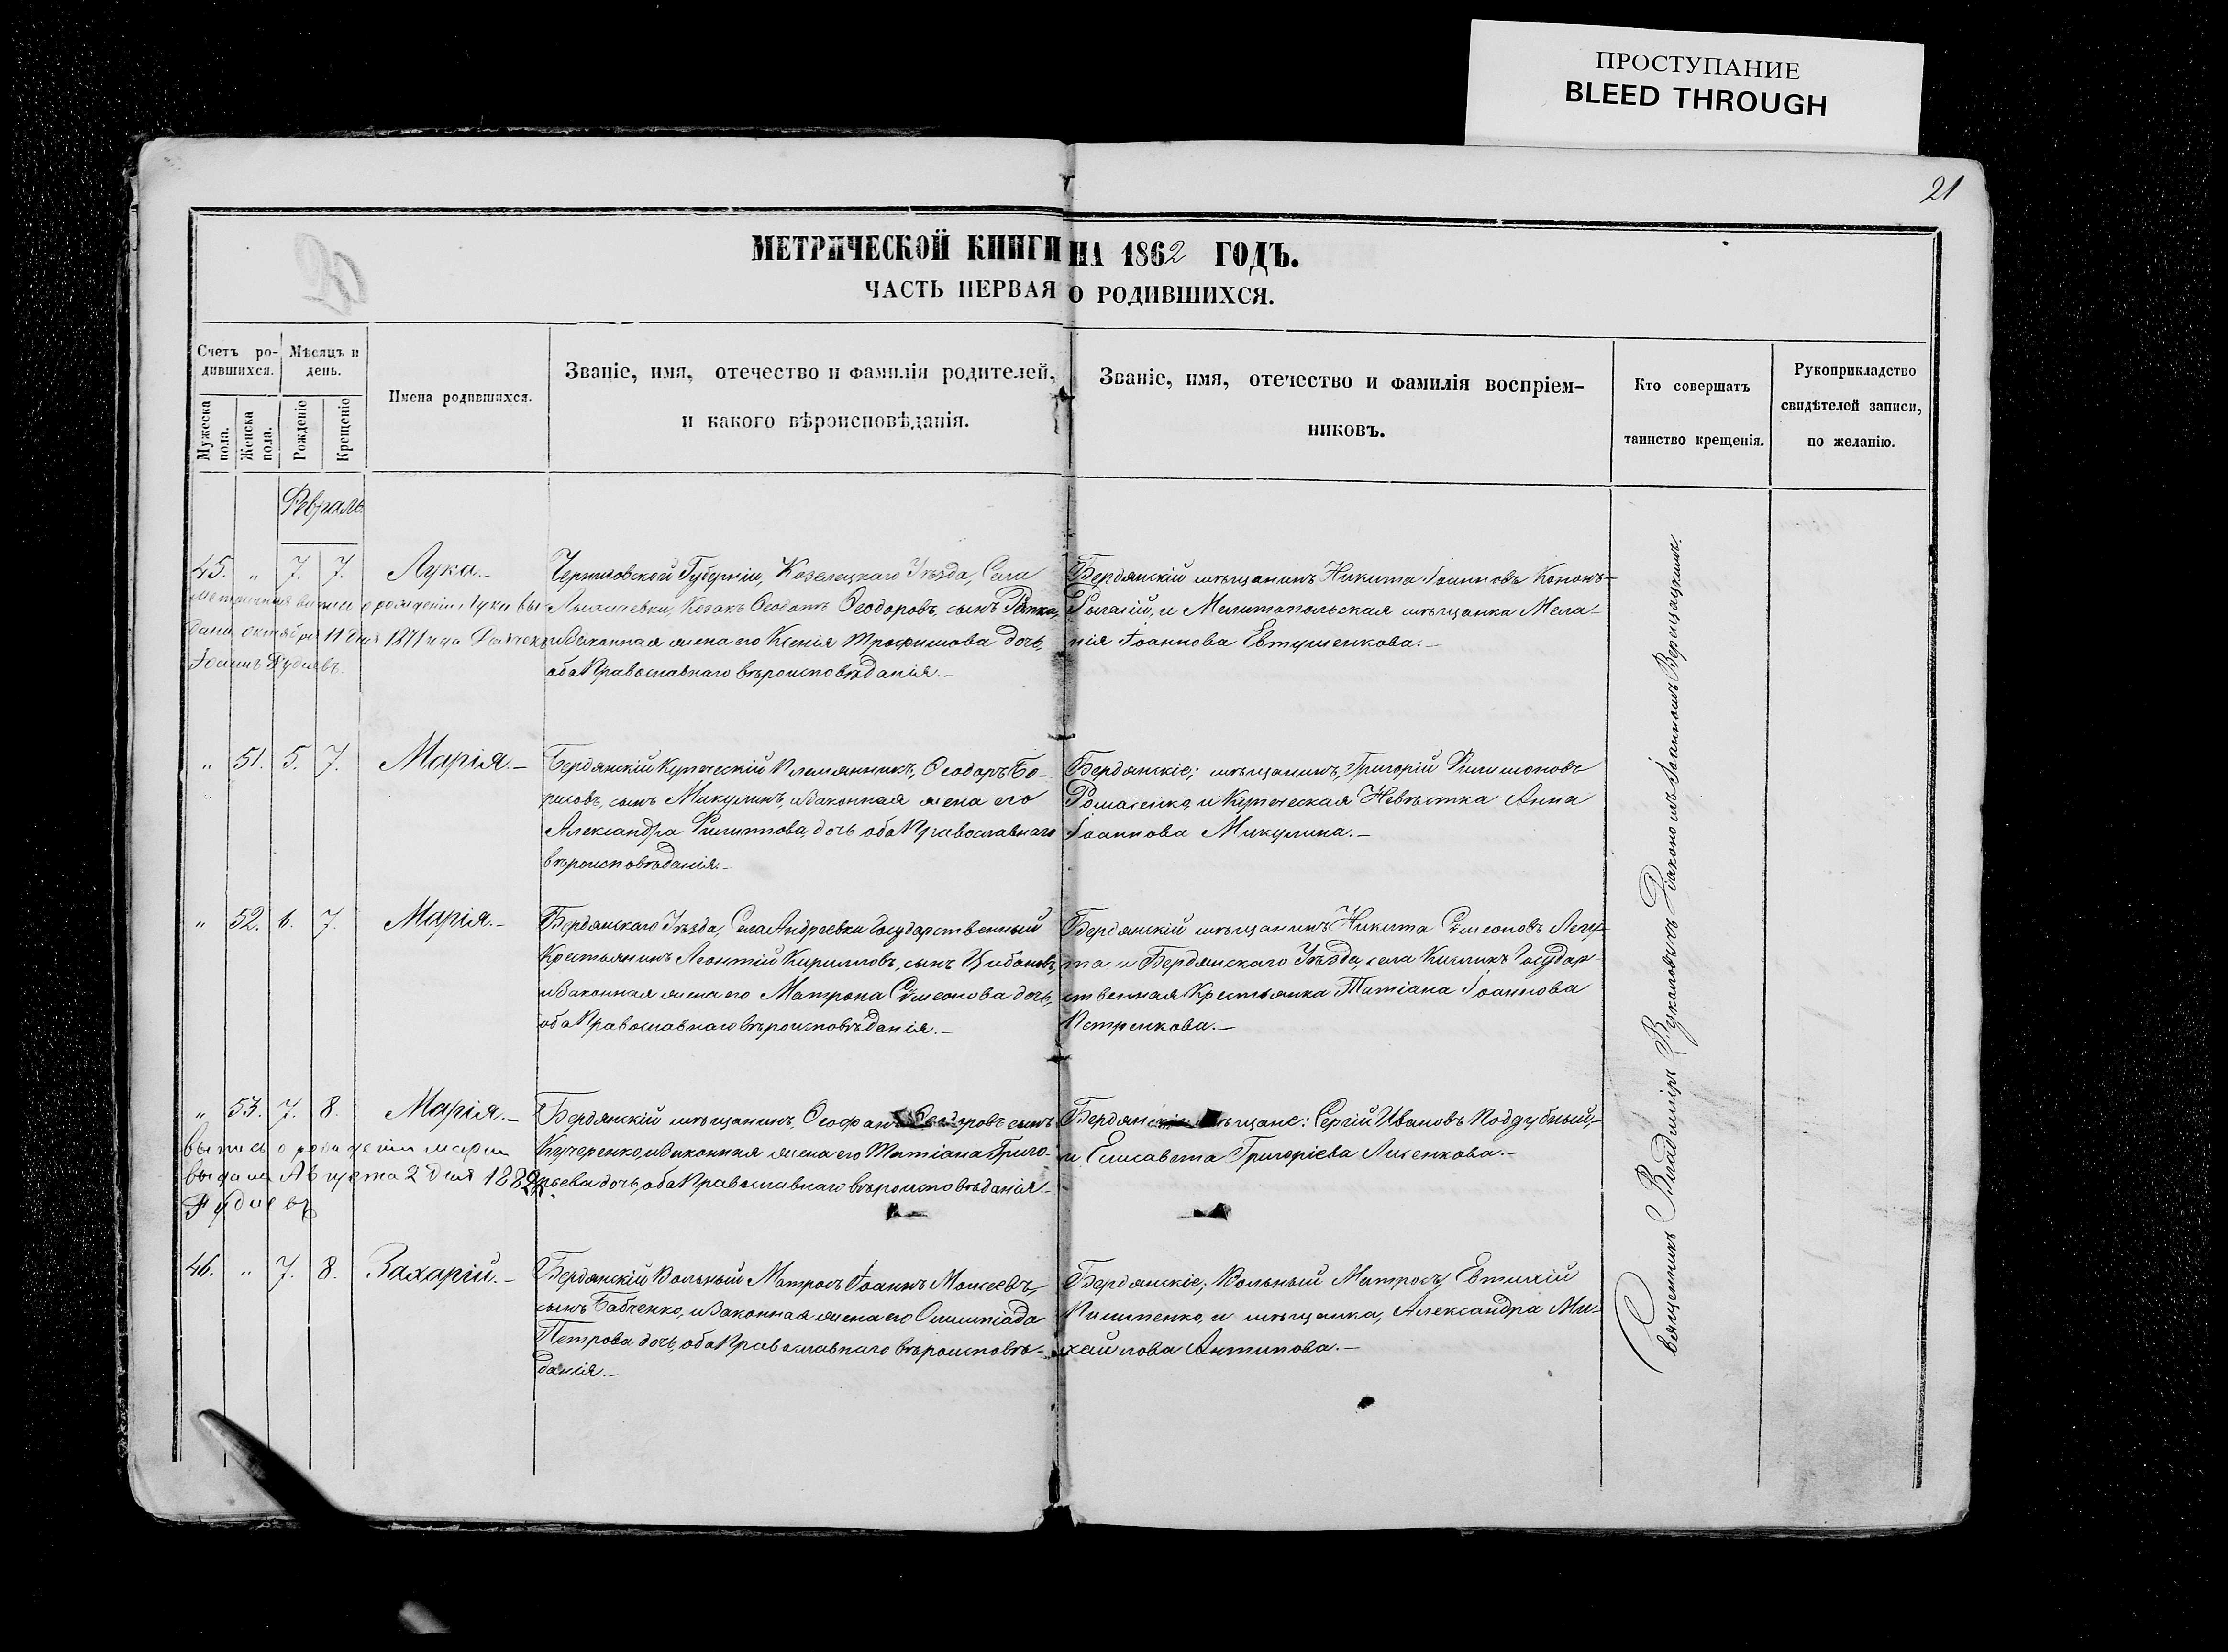 ПРОСТУПАНИЕ
BLEED THROUGH
21
МЕТРИЧЕСКОЙ КНИГИ НА 1862 ГОДЪ.
ЧАСТЬ ПЕРВАЯ О РОДИВШИХСЯ.
Счетъ ро-
дившихся.
Мужеска пола.
Женска пола.
Мѣсяцъ и
день.
Рожденіе
Крещеніе
Имена родившихся.
Званіе, имя, отечество и фамилія родителей,
и какого вѣроисповѣданія.
Званіе, имя, отечество и фамилія воспріем-
никовъ.
Кто совершатъ
таинство крещенія.
Рукоприкладство
свидѣтелей записи,
по желанію.
Февраль
45. " 7. 7. Лука.-
Черниговской Губерніи, Козелецкаго Уѣзда, Села
Козакъ Ѳеодотъ Ѳеодоровъ, сынъ
и законная жена его Ксенія Трофимова дочь,
оба Православнаго вѣроисповѣданія.-
Бердянскій мѣщанинъ Никита Іоанновъ
и Мелитопольская мѣщанка Мела-
нія Іоаннова Евтушенкова.-
о рожденіи Луки вы-
дана октября 11 дня 1871 года
Іоаннъ Рудневъ.
" 51. 5. 7. Марія.-
Бердянскій Купеческій Племянникъ, Ѳеодоръ Бо-
рисовъ, сынъ Микулинъ, и законная жена его
Александра Филиппова, дочь оба Православнаго
вѣроисповѣданія.-
Бердянскіе; мѣщанинъ, Григорій Филимоновъ
Ромасенко, и Купеческая Невѣстка Анна
Іоаннова Микулина.-
" 52. 6. 7. Марія.-
Бердянскаго Уѣзда, Села Андреевки Государственный
Крестьянинъ Леонтій Кирилловъ, сынъ Цибановъ,
и законная жена его Матрона Сѵмеонова дочь,
оба Православнаго вѣроисповѣданія.-
Бердянскій мѣщанинъ Никита Сѵмеоновъ
и Бердянскаго Уѣзда, села Государ-
ственная Крестьянка Татіана Іоаннова
Петренкова.-
" 53. 7. 8. Марія.-
Бердянскій мѣщанинъ, Ѳеофанъ сынъ
Кучеренко, и законная жена его Татіана Григо-
рьева дочь, оба Православнаго вѣроисповѣданія.-
Бердянскіе мѣщане: Сергій Ивановъ Поддубный,
и Елисавета Григоріева Лисенкова.-
выпись о рожденіи маріи
выдана Августа 2 дня 1882
Рудневъ
46. " 7. 8. Захарій.-
Бердянскій Вольный Матросъ Іоаннъ Моисеевъ,
сынъ Бабченко, и законная жена его Олимпіада
Петрова дочь, оба Православнаго вѣроисповѣ-
данія.-
Бердянскіе; Вольный Матросъ, Евтихій
Пилипенко, и мѣщанка, Александра Ми-
хаилова Антипова.-
Священникъ Владиміръ Вуколовъ съ Діакономъ Іоанномъ Верещацкимъ.